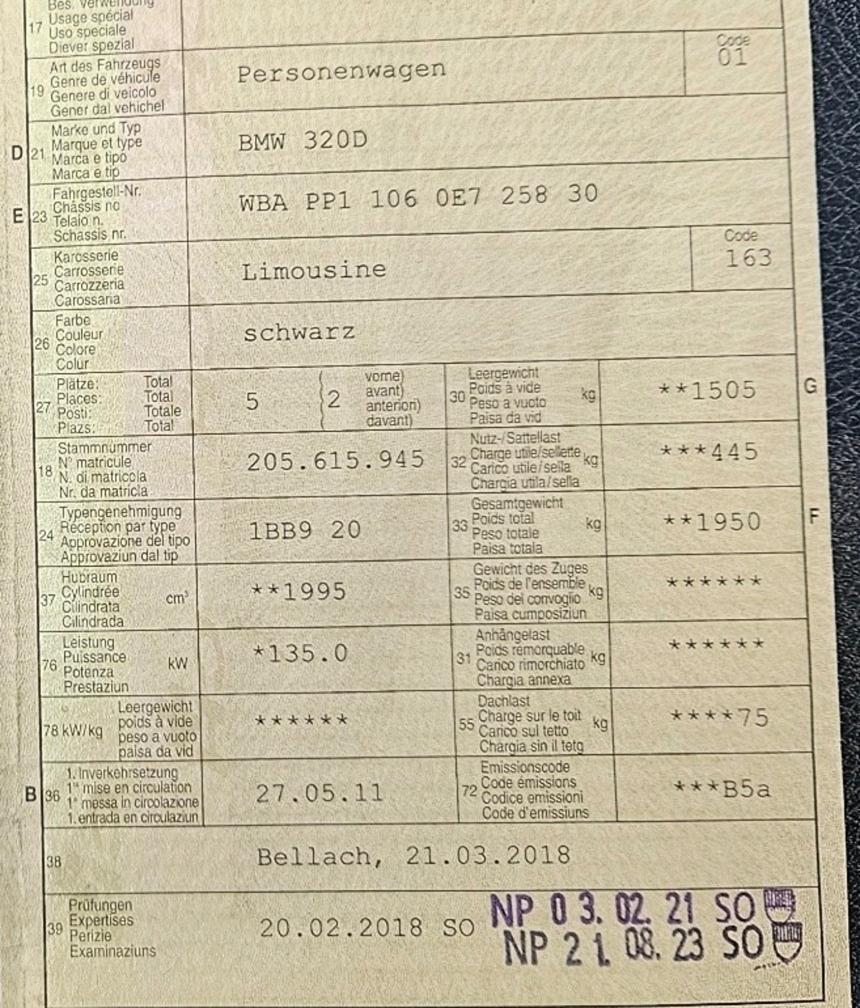 Bes. Verwendung
17 Usage spécial
Uso speciale
Diever spezial
19 Art des Fahrzeugs
Genre de véhicule
Genere di veicolo
Gener dal vehichel
Personenwagen
Code
01
D 21 Marke und Typ
Marque et type
Marca e tipo
Marca e tip
BMW 320D
E 23 Fahrgestell-Nr.
Châssis no
Telaio n.
Schassis nr.
WBA PP1 106 0E7 258 30
25 Karosserie
Carrosserie
Carrozzeria
Carossaria
Limousine
Code
163
26 Farbe
Couleur
Colore
Colur
schwarz
27 Plätze: Total
Places: Total
Posti: Totale
Plazs: Total
5 2
vorne)
avant)
anteriori)
davant)
30 Leergewicht
Poids à vide
Peso a vuoto
Paisa da vid
kg
**1505
G
18 Stammnummer
N° matricule
N. di matricola
Nr. da matricla
205.615.945
32 Nutz-/Sattellast
Charge utile/sellette
Carico utile/sella
Chargia utila/sella
kg
***445
24 Typengenehmigung
Réception par type
Approvazione del tipo
Approvaziun dal tip
1BB9 20
33 Gesamtgewicht
Poids total
Peso totale
Paisa totala
kg
**1950
F
37 Hubraum
Cylindrée
Cilindrata
Cilindrada
cm³
**1995
35 Gewicht des Zuges
Poids de l'ensemble
Peso del convoglio
Paisa cumposiziun
kg
******
76 Leistung
Puissance
Potenza
Prestaziun
kW
*135.0
31 Anhängelast
Poids remorquable
Carico rimorchiato
Chargia annexa
kg
******
78 kW/kg
Leergewicht
poids à vide
peso a vuoto
paisa da vid
******
55 Dachlast
Charge sur le toit
Carico sul tetto
Chargia sin il tetg
kg
****75
B 36 1. Inverkehrsetzung
1re mise en circulation
1a messa in circolazione
1. entrada en circulaziun
27.05.11
72 Emissionscode
Code émissions
Codice emissioni
Code d'emissiuns
***B5a
38
Bellach, 21.03.2018
39 Prüfungen
Expertises
Perizie
Examinaziuns
20.02.2018 SO
NP 03. 02. 21 SO
NP 21. 08. 23 SO